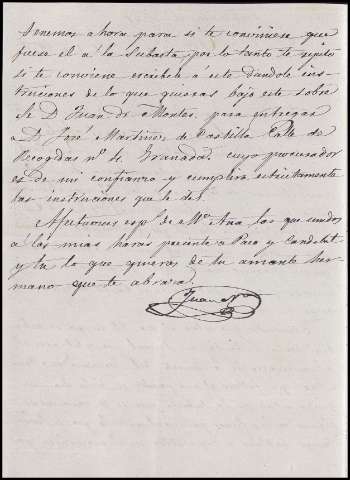 tenemos ahora para si te conviniese que
fuese el a la Subasta por lo tanto te repito
si te conviene escribele á este dandole ins-
trucciones de lo que quieras bajo este sobre
Sr D Juan de Montes, para entregar
a D José Martinez de Castilla Calle de
Recogidas nº 4 Granada, cuyo procurador
es de mi confianza y cumplira estrictamente
las instruciones que le des.
Afectuosas esp.s de Mª Ana las que unidos
a las mias haras presente a Paca y Candelar.
y tu lo que quieras de tu amante her-
mano que te abraza.
Juan